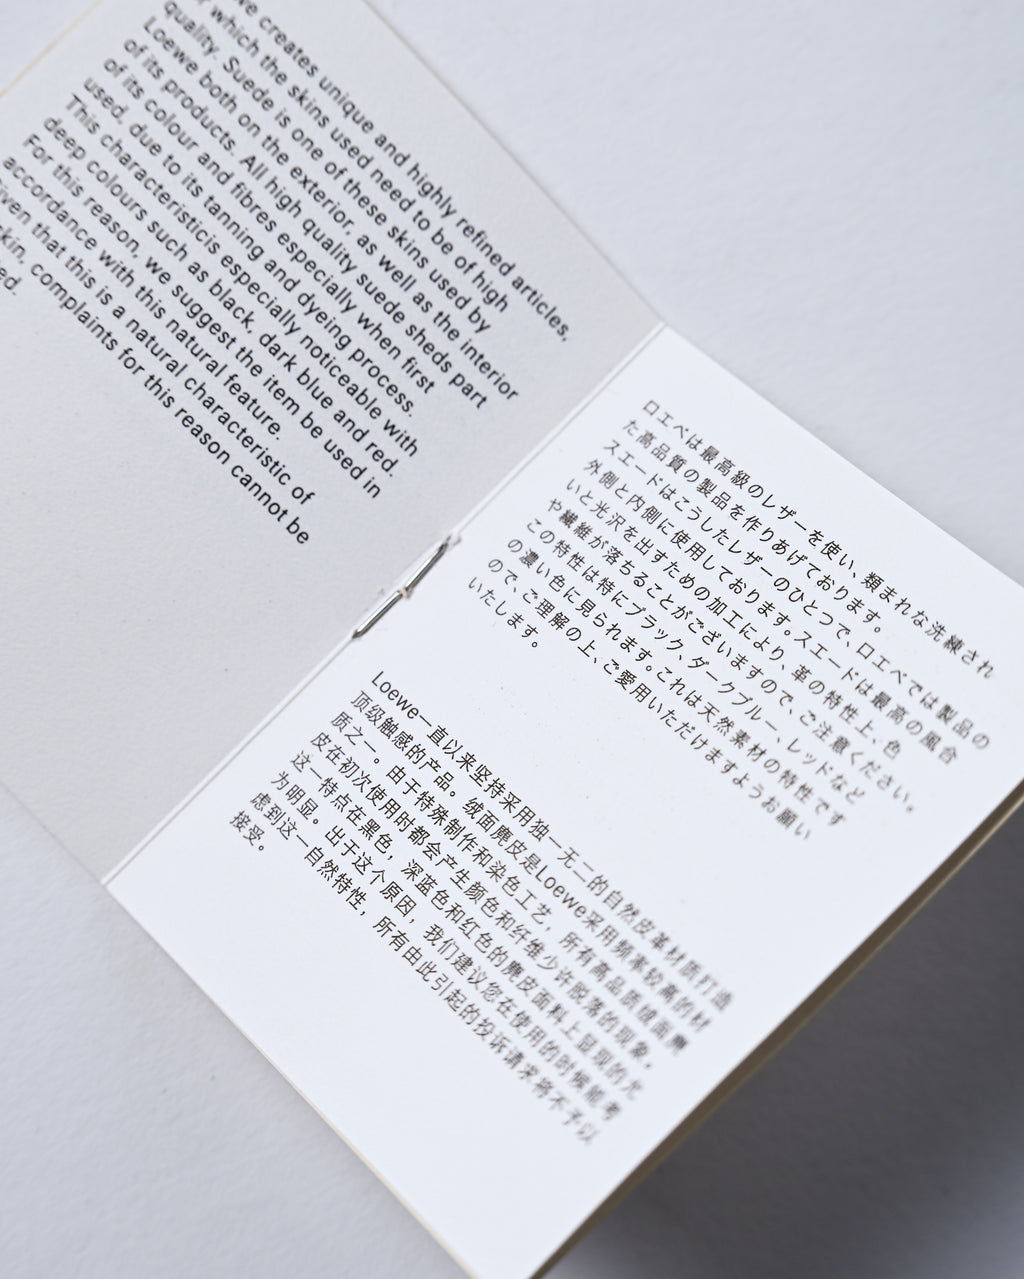 we creates unique and highly refined articles,
which the skins used need to be of high
quality. Suede is one of these skins used by
Loewe both on the exterior, as well as the interior
of its products. All high quality suede sheds part
of its colour and fibres especially when first
used, due to its tanning and dyeing process.
This characteristicis especially noticeable with
deep colours such as black, dark blue and red.
For this reason, we suggest the item be used in
accordance with this natural feature.
iven that this is a natural characteristic of
skin, complaints for this reason cannot be
ed.
ロエベは最高級のレザーを使い、類まれな洗練され
た高品質の製品を作りあげております。
スエードはこうしたレザーのひとつで、ロエベでは製品の
外側と内側に使用しております。スエードは最高の風合
いと光沢を出すための加工により、革の特性上、色
や繊維が落ちることがございますので、ご注意ください。
この特性は特にブラック、ダークブルー、レッドなど
の濃い色に見られます。これは天然素材の特性です
ので、ご理解の上、ご愛用いただけますようお願い
いたします。
Loewe一直以来坚持采用独一无二的自然皮革材质打造
顶级触感的产品。绒面麂皮是Loewe采用频率较高的材
质之一。由于特殊制作和染色工艺，所有高品质绒面麂
皮在初次使用时都会产生颜色和纤维少许脱落的现象。
这一特点在黑色，深蓝色和红色的麂皮面料上显现的尤
为明显。出于这个原因，我们建议您在使用的时候能考
虑到这一自然特性，所有由此引起的投诉请求将不予以
接受。